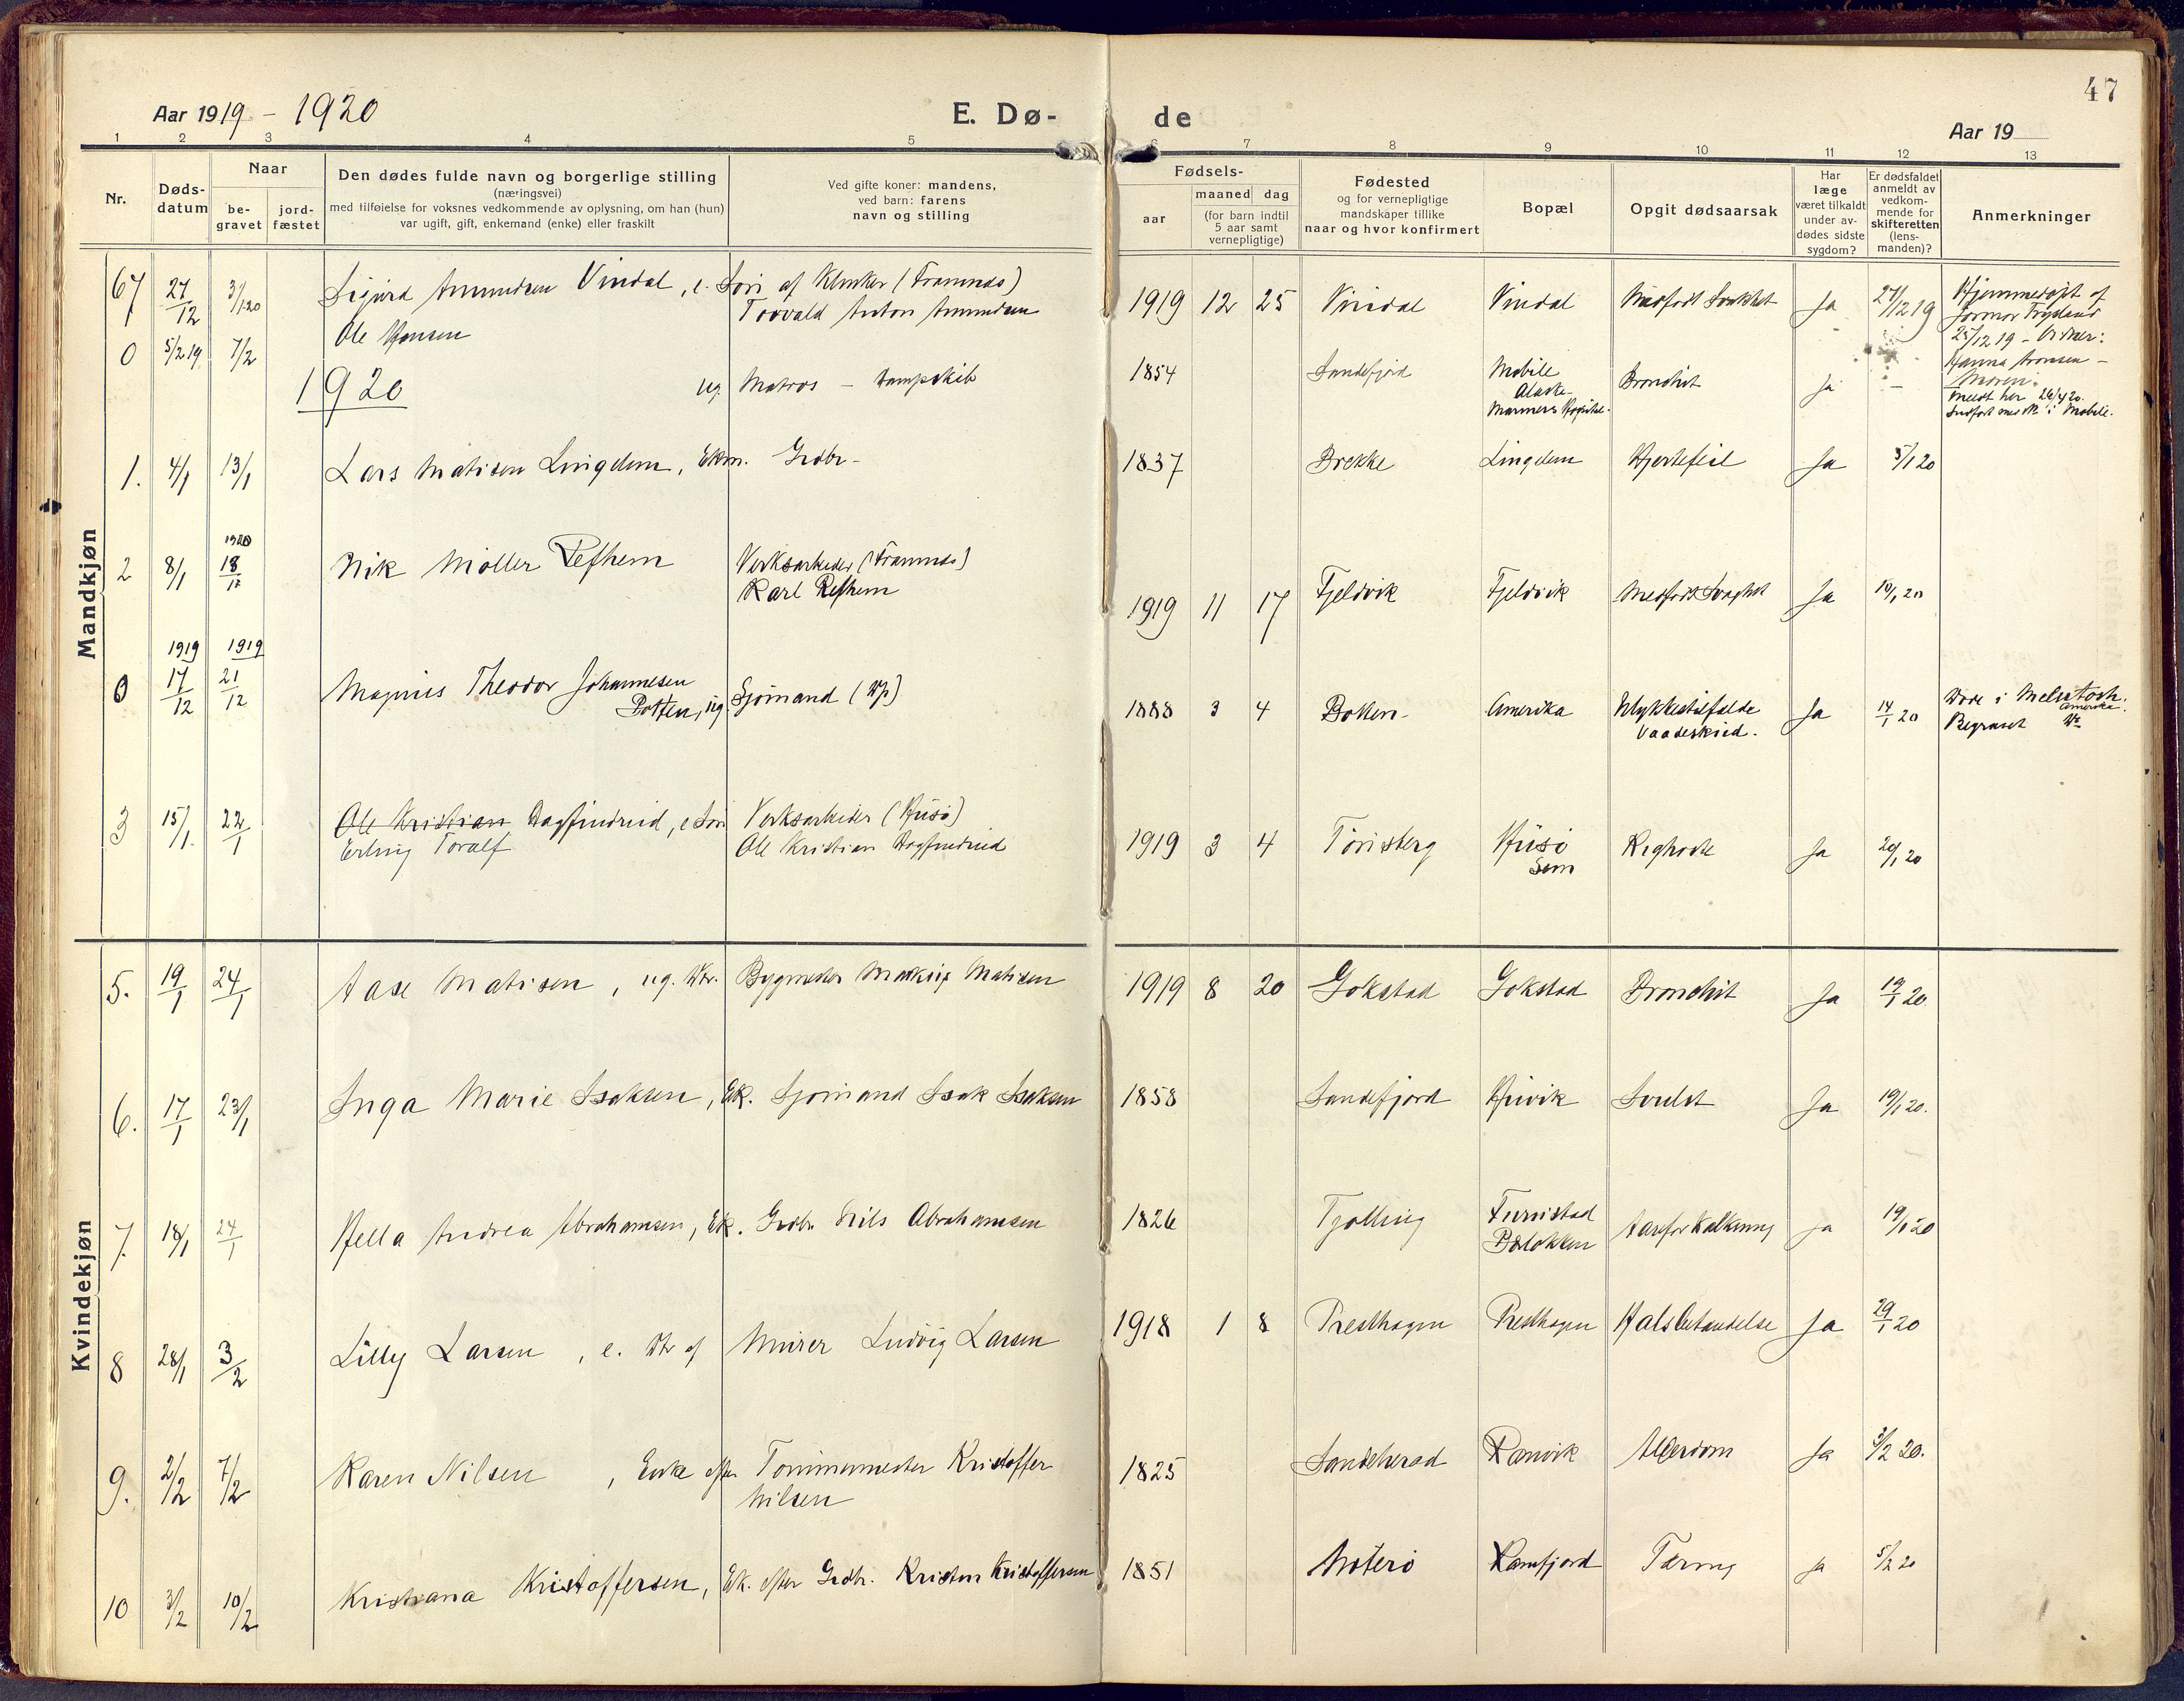 47
Aar 1919 - 1920
E. Dø-
de
Aar 19
1 2 3 4 5 6 7 8 9 10 11 12 13
Nr.
Døds-
datum
Naar
be-
gravet
jord-
fæstet
Den dødes fulde navn og borgerlige stilling
(næringsvei)
med tilføielse for voksnes vedkommende av oplysning, om han (hun)
var ugift, gift, enkemand (enke) eller fraskilt
Ved gifte koner: mandens,
ved barn: farens
navn og stilling
Fødsels-
aar
maaned dag
(for barn indtil
5 aar samt
vernepligtige)
Fødested
og for vernepligtige
mandskaper tillike
naar og hvor konfirmert
Bopæl
Opgit dødsaarsak
Har
læge
været tilkaldt
under av-
dødes sidste
sygdom?
Er dødsfaldet
anmeldt av
vedkom-
mende for
skifteretten
(lens-
manden)?
Anmerkninger
Mandkjøn
67 27/12 3/1 20 Sigurd Amundsen Vindal, e. Søn af Klinker (Framnæs)
Torvald Anton Amundsen
1919 12 25 Vindal Vindal Medfødt Svakhet Ja 27/12 19
Hjemmedøpt af
Jormor Frydland
25/12 19 - Vidner:
Hanna Aronsen -
Moren.
0 5/2 19 7/2 Ole Hansen
ug. Matros - Dampskib
1854 Sandefjord Mobile
Mariners Hospital. Bronchit Ja -
Meldt her 26/4 20.
i Mobile.
1920
1. 4/1 13/1 Lars Matisen Lingelem, Ekm. Grdbr - 1837 Brekke Lingelem Hjertefeil Ja 5/1 20
2 8/1 1920 18/12 Nik Møller Refhem Verksarbeider (Framnæs)
Karl Refhem
1919 11 17 Fjeldvik Fjeldvik Medfødt Svaghet Ja 10/1 20
0 1919 17/12 1919 21/12 Magnus Theodor Johannesen
Botten, ug. Sjømand
1888 3 4 Botten - Amerika Ulykkestilfælde
Vaadeskud. Ja 14/1 20
Amerika.
Begravet
3 15/1. 22/1 Ole Kristian Dagfindrud, e Søn Verksarbeider (Husø)
Erling Toralf Ole Kristian Dagfindrud
1919 3 4 Tønsberg Husø
Sem Kighoste Ja 20/1 20
Kvindekjøn
5. 19/1 24/1 Aase Matisen, ug. Dtr. Bygmester Markus Matisen 1919 8 20 Gokstad Gokstad Bronchit Ja 19/1 20.
6. 17/1 23/1 Inga Marie Isaksen, Ek. Sjømand Isak Isaksen 1858 Sandefjord Huvik Svulst Ja 19/1 20.
7. 18/1 24/1 Hella Andrea Abrahamsen, Ek. Grdbr. Nils Abrahamsen 1826 Tjølling Furustad
Bæløkken Aareforkalkning Ja 19/1 20
8 28/1 3/2 Lilly Larsen, e. Dtr af Murer Ludvig Larsen 1918 1 8 Presthagen Presthagen Halsbetændelse Ja 29/1 20
9. 2/2 7/2 Karen Nilsen, Enke efter Tømmermester Kristoffer
Nilsen
1825 Sandeherad Ranvik Alderdom Ja 3/2 20.
10 3/2 10/2 Kristiana Kristoffersen, Ek. efter Grdbr. Kristen Kristoffersen 1851 Nøterø Kamfjord Tæring Ja 5/2 20